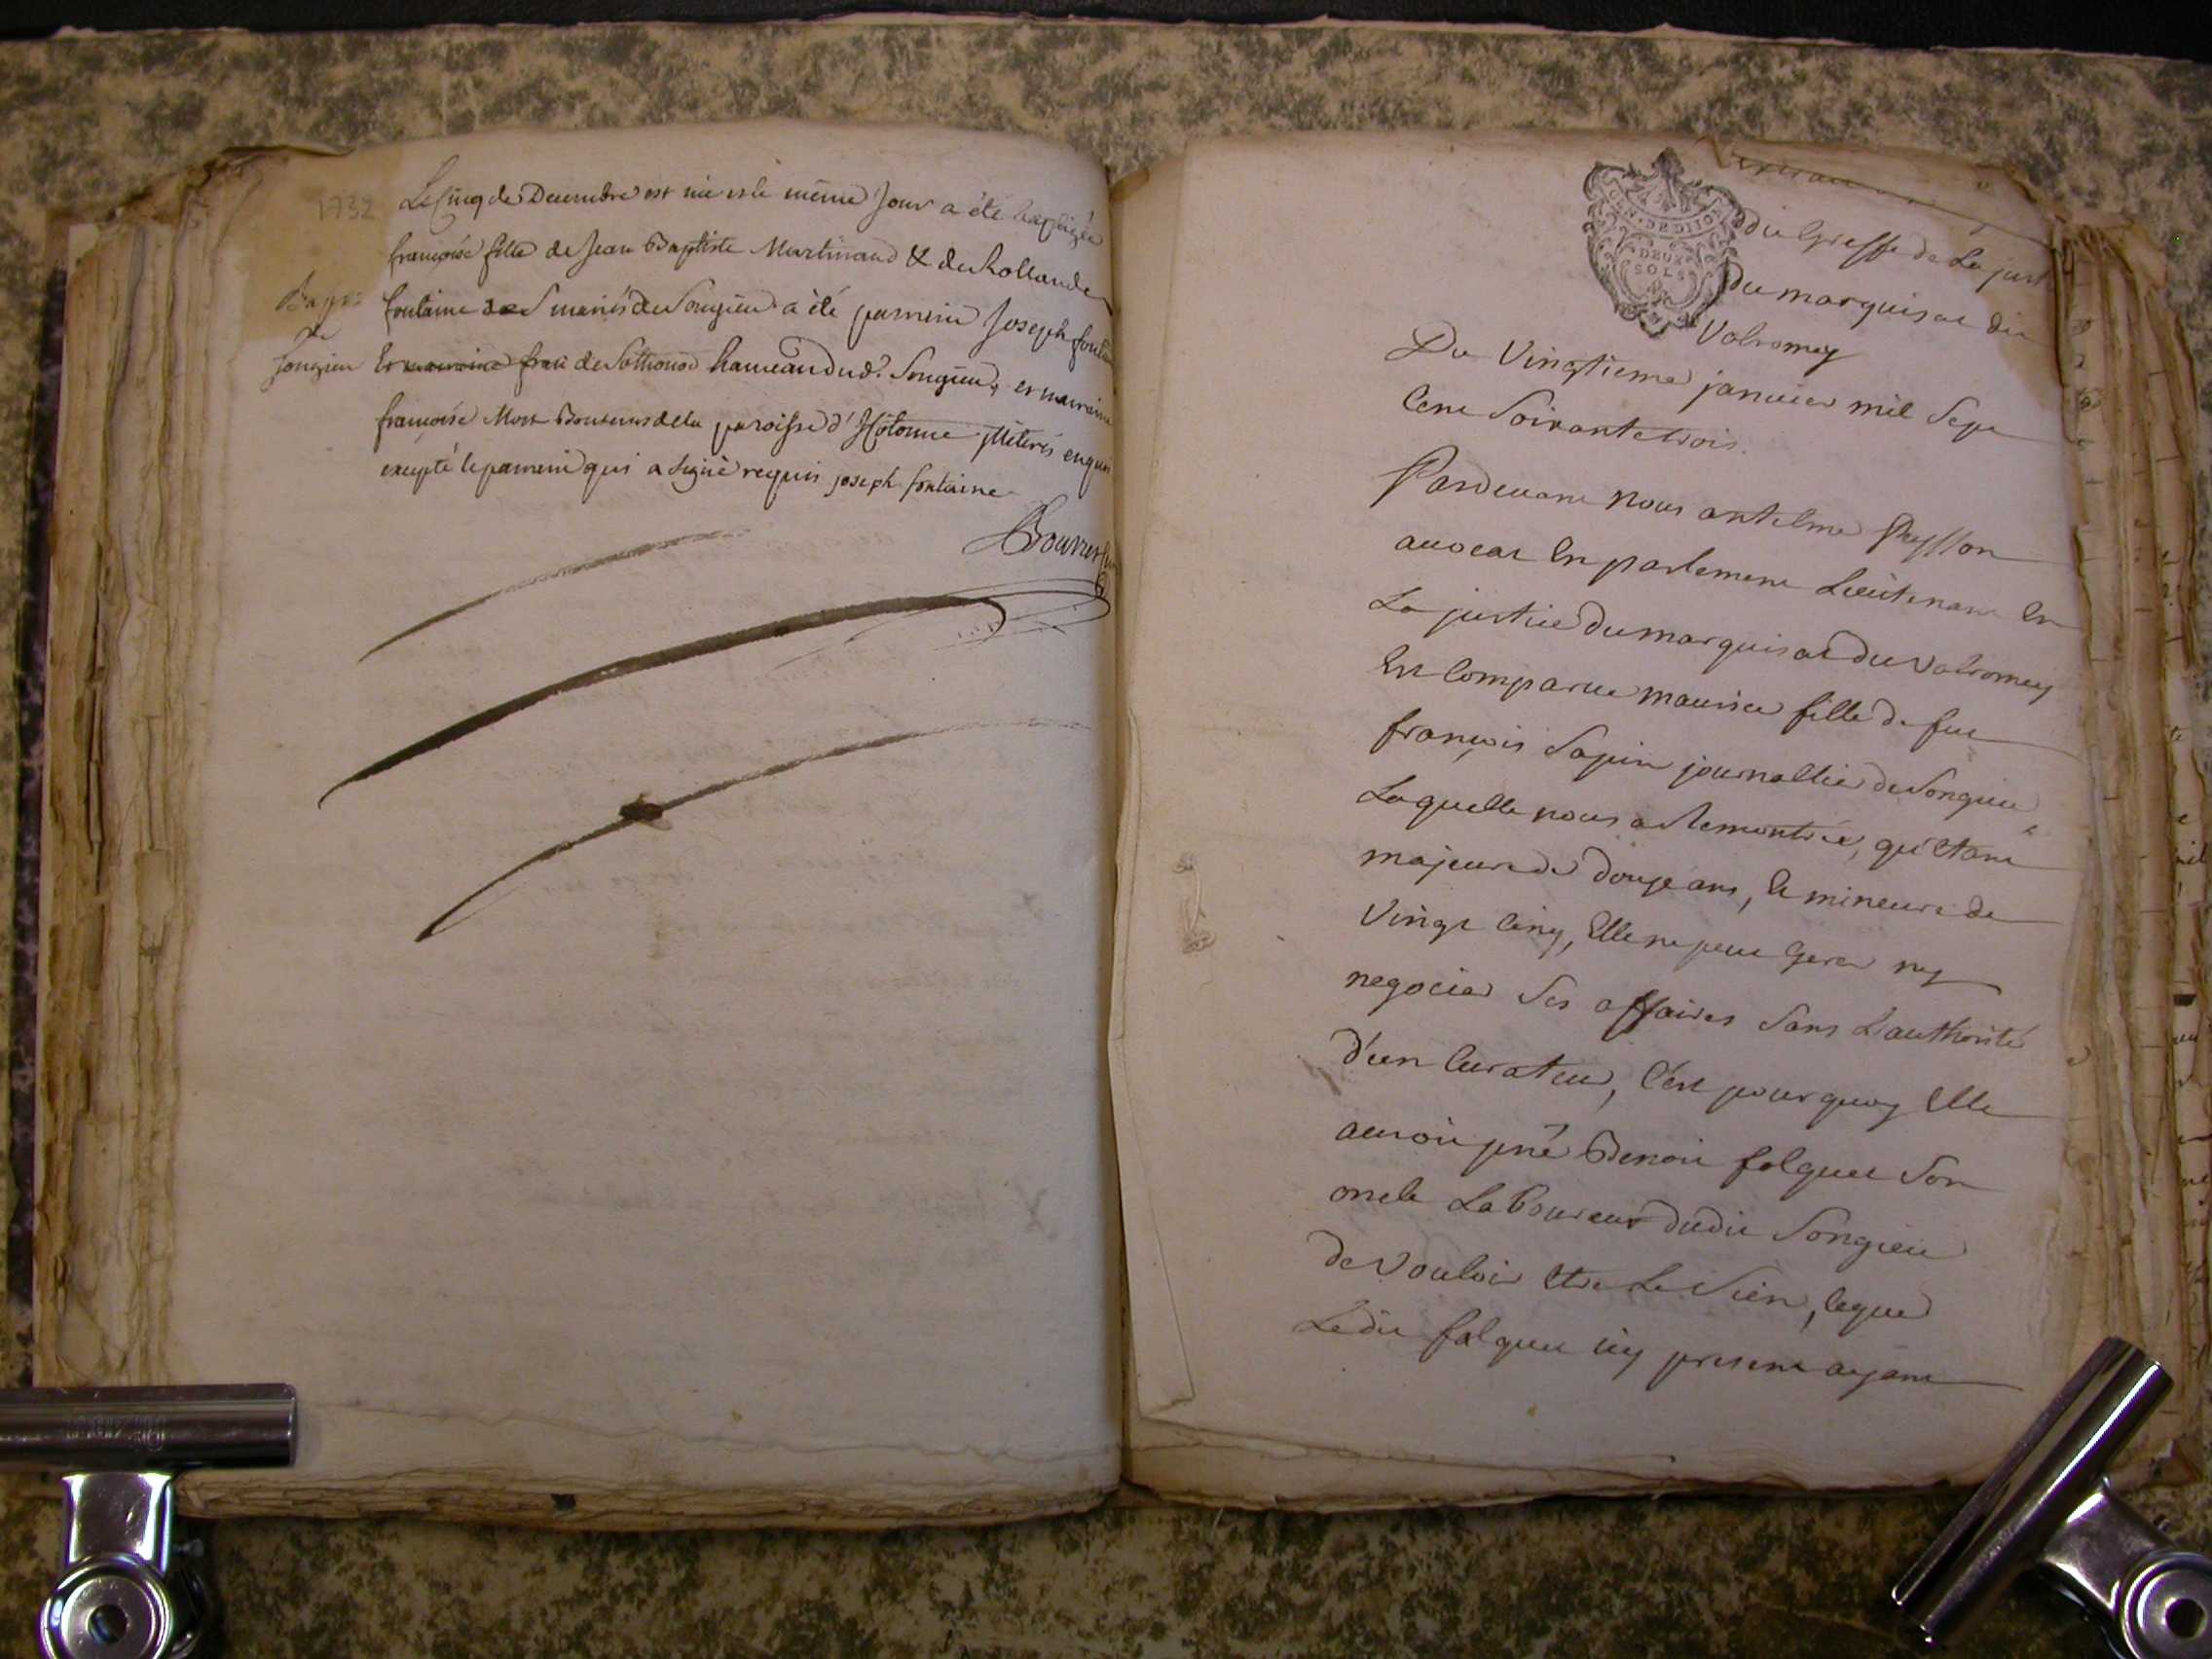 1732
Le Cinq de Decembre est née et le même Jour a été baptizée
françoise fille de Jean Baptiste Martinand & de Rollande
fontaine mariés de Songieu a été parrein Joseph fontai
de Sothonod hameau dud. Songieu, et marraine
françoise de la paroisse d'Hotonne illiterés enquis
excepté le parrein qui a signé requis joseph fontaine
Bap
de
Songieu
Bouvier
GEN. DE DIJON
DEUX
SOLS
du Greffe de La just
Du marquisat du
Valromey
Du Vingtieme janvier mil Sept
Cent Soixante trois.
Pardevant Nous antelme Peysson
avocat En parlement Lieutenant En
La justice du marquisat du Valromey
Est Comparue maurice fille de feu
françois Sapin journallier de Songieu
Laquelle nous a Remontrée, qu'Etant
majeure de douze ans, Et mineure de
Vingt Cinq, Elle ne peut Gerer ny
negocier Ses affaires Sans L'authorité
d'un Curateur, C'est pourquoy Elle
auroit prié Benoit folquet Son
oncle Laboureur dudit Songieu
de Vouloir Etre Le Sien, Ceque
Ledit folquet icy present ayant